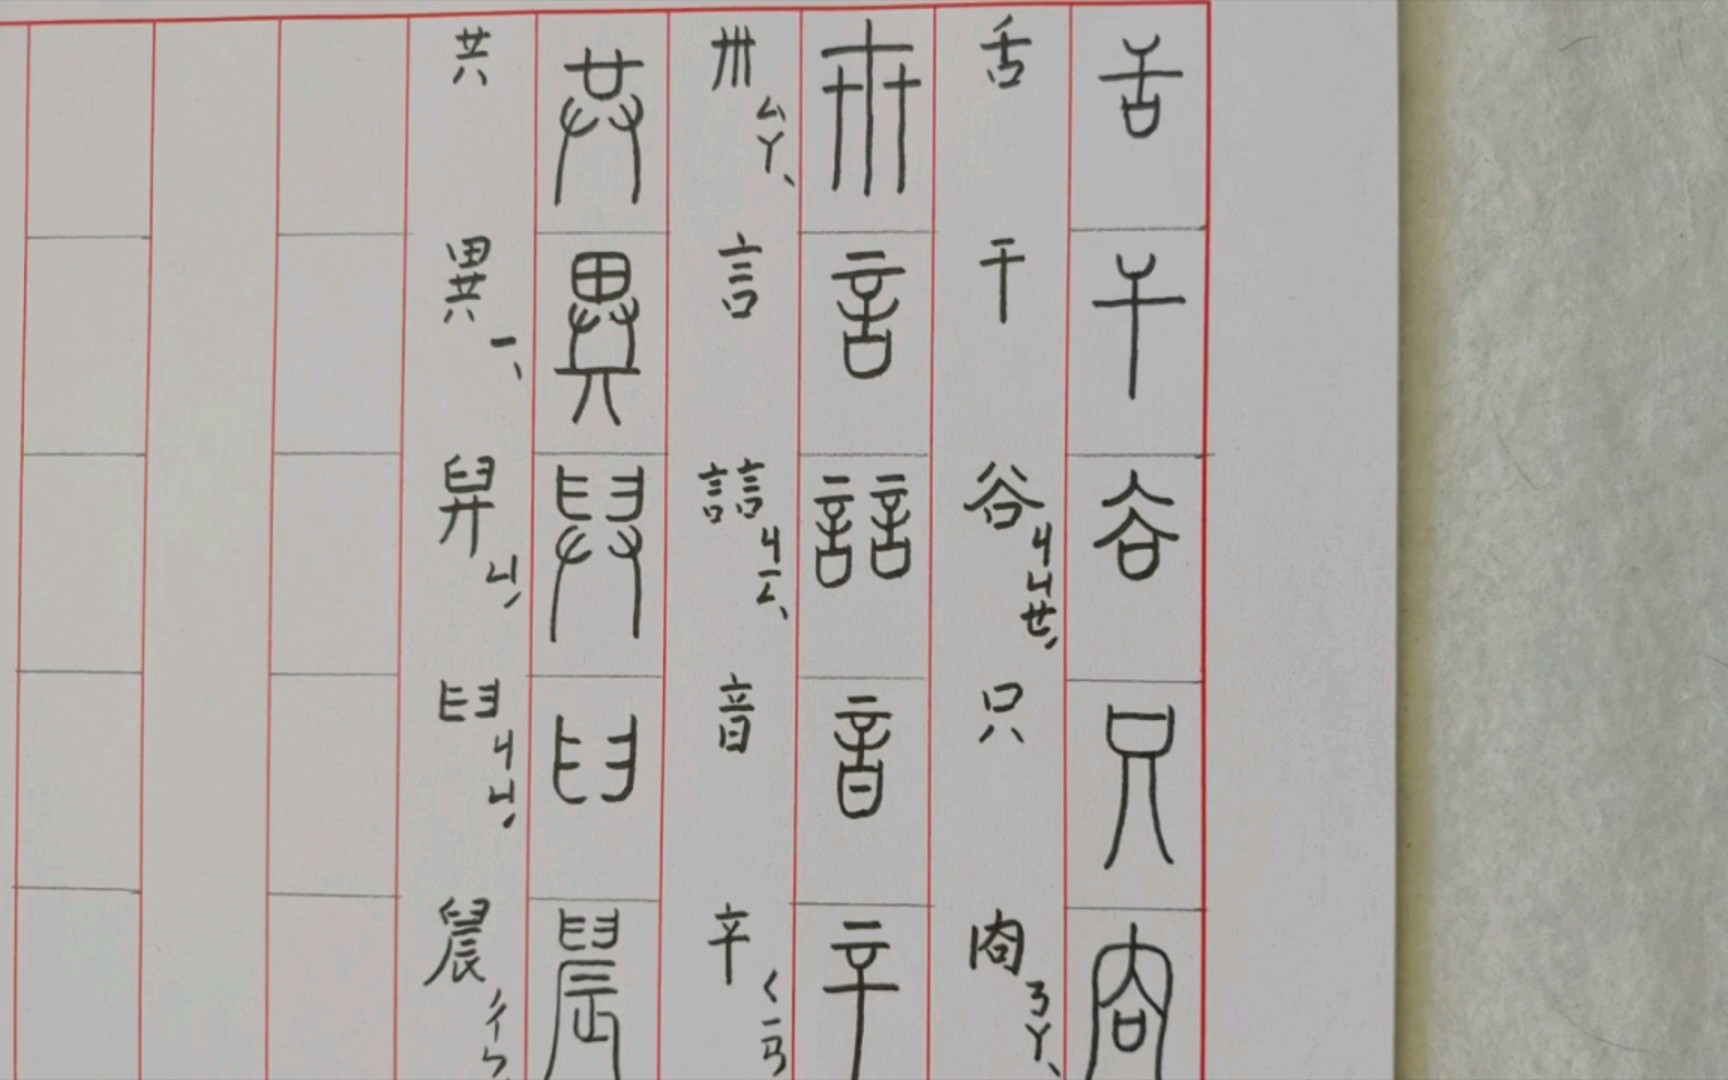 舌干谷只㕯
舌 干 谷ㄐㄩㄝˊ 只 㕯ㄋㄚˋ
卅言誩音䇂
卅ㄙㄚˋ 言 誩ㄐㄧㄥˋ 音 䇂ㄑㄧㄢ
共異舁𦥑䢅
共 異ㄧˋ 舁ㄩˊ 𦥑ㄐㄩˊ 䢅ㄔㄣ